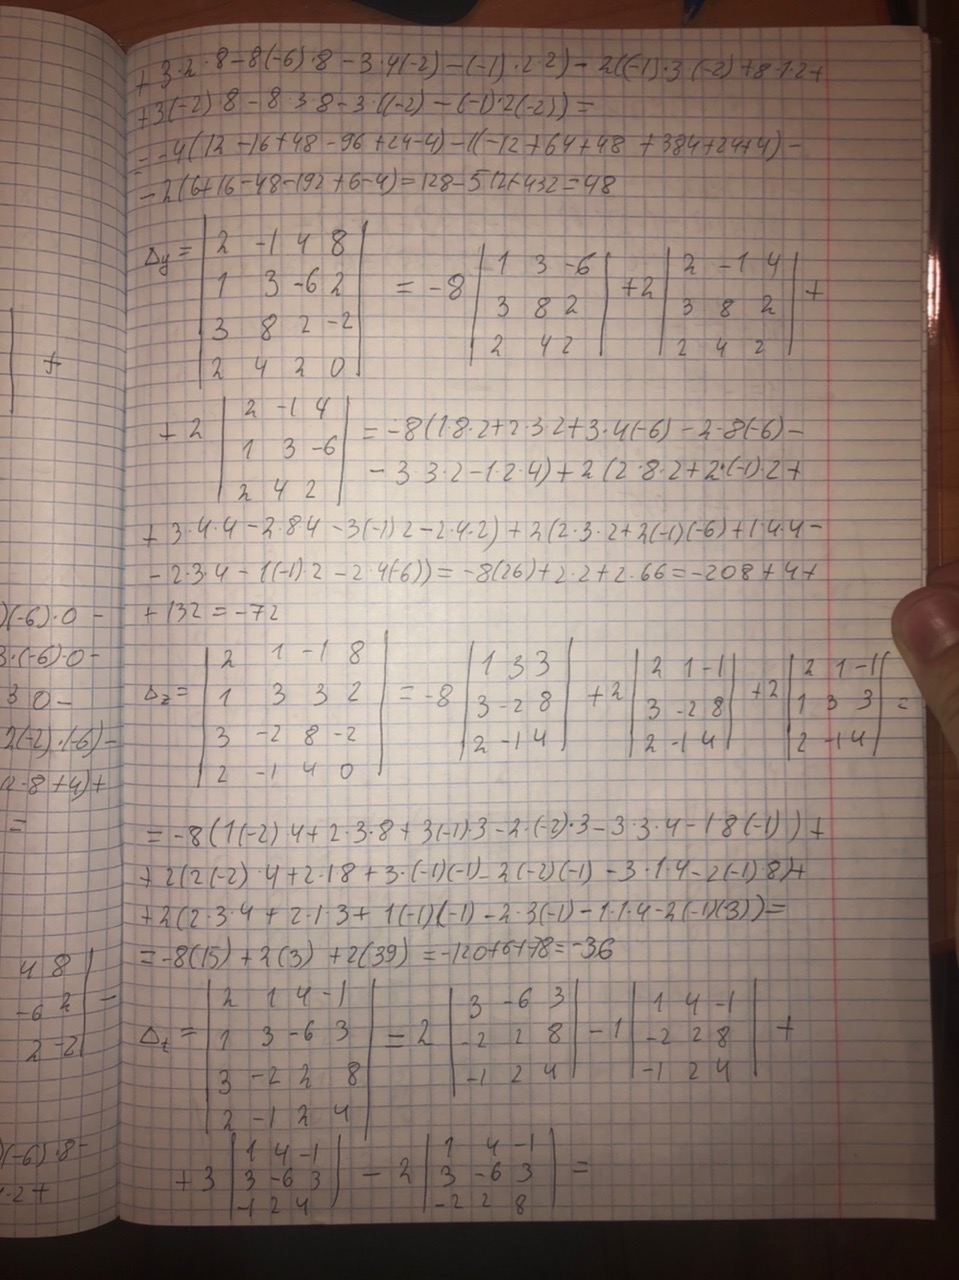 + 3·2·8-8(-6)·8-3·4(-2)-(-1)·2·2)-2((-1)·3·(-2)+8·1·2+
+3(-2)·8-8·3·8-3·1(-2)-(-1)·2(-2))=
=-4(12-16+48-96+24-4)-1(-12+64+48+384+24+4)-
-2(6+16-48-192+6-4)=128-512+432=48
Δy= | 2 -1 4 8 | = -8 | 1 3 -6 | +2 | 2 -1 4 | +
1 3 -6 2 3 8 2 3 8 2
3 8 2 -2 2 4 2 2 4 2
2 4 2 0
+2 | 2 -1 4 | = -8(1·8·2+2·3·2+3·4(-6)-2·8(-6)-
1 3 -6 -3·3·2-1·2·4)+2(2·8·2+2·(-1)·2+
2 4 2
+3·4·4-2·8·4-3(-1)2-2·4·2)+2(2·3·2+2(-1)(-6)+1·4·4-
-2·3·4-1(-1)·2-2·4(-6))=-8(26)+2·2+2·66=-208+4+
+132=-72
Δz= | 2 1 -1 8 | = -8 | 1 3 3 | +2 | 2 1 -1 | +2 | 2 1 -1 | =
1 3 3 2 3 -2 8 3 -2 8 1 3 3
3 -2 8 -2 2 -1 4 2 -1 4 2 -1 4
2 -1 4 0
=-8(1(-2)·4+2·3·8+3(-1)·3-2·(-2)·3-3·3·4-1·8(-1))+
+2(2(-2)·4+2·1·8+3·(-1)(-1)-2(-2)(-1)-3·1·4-2(-1)·8)+
+2(2·3·4+2·1·3+1(-1)(-1)-2·3(-1)-1·1·4-2(-1)(3))=
=-8(15)+2(3)+2(39)=-120+6+78=-36
Δt= | 2 1 4 -1 | = 2 | 3 -6 3 | -1 | 1 4 -1 | +
1 3 -6 3 -2 2 8 -2 2 8
3 -2 2 8 -1 2 4 -1 2 4
2 -1 2 4
+3 | 1 4 -1 | -2 | 1 4 -1 | =
3 -6 3 3 -6 3
-1 2 4 -2 2 8
+
)(-6)·0-
3·(-6)·0-
3 0-
2(-2)·(-6)-
(2-8+4)+
=
4 8
-6 2 -
2 -2
)(-6)·8-
·2+